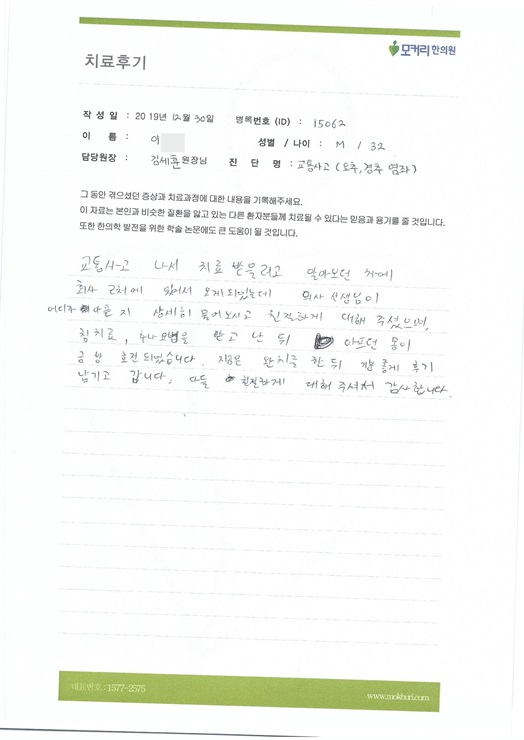 모커리한의원
치료후기
작 성 일 : 2019년 12월 30일 병록번호 (ID) : 15062
이 름 : 이 성별 / 나이 : M / 32
담당원장 : 김세훈 원장님 진 단 명 : 교통사고 (요추, 경추 염좌)
그 동안 겪으셨던 증상과 치료과정에 대한 내용을 기록해주세요.
이 자료는 본인과 비슷한 질환을 앓고 있는 다른 환자분들께 치료될 수 있다는 믿음과 용기를 줄 것입니다.
또한 한의학 발전을 위한 학술 논문에도 큰 도움이 될 것입니다.
교통사고 나서 치료 받을려고 알아보던 차에
회사 근처에 있어서 오게 되었는데 의사 선생님이
어디가 아픈 지 상세히 물어보시고 친절하게 대해 주셨으며,
침치료, 추나 요법을 받고 난 뒤 아프던 몸이
금방 호전 되었습니다. 지금은 완치를 한 뒤 기분 좋게 후기
남기고 갑니다. 다들 친절하게 대해 주셔서 감사합니다.
대표번호 : 1577-2575
www.mokhuri.com